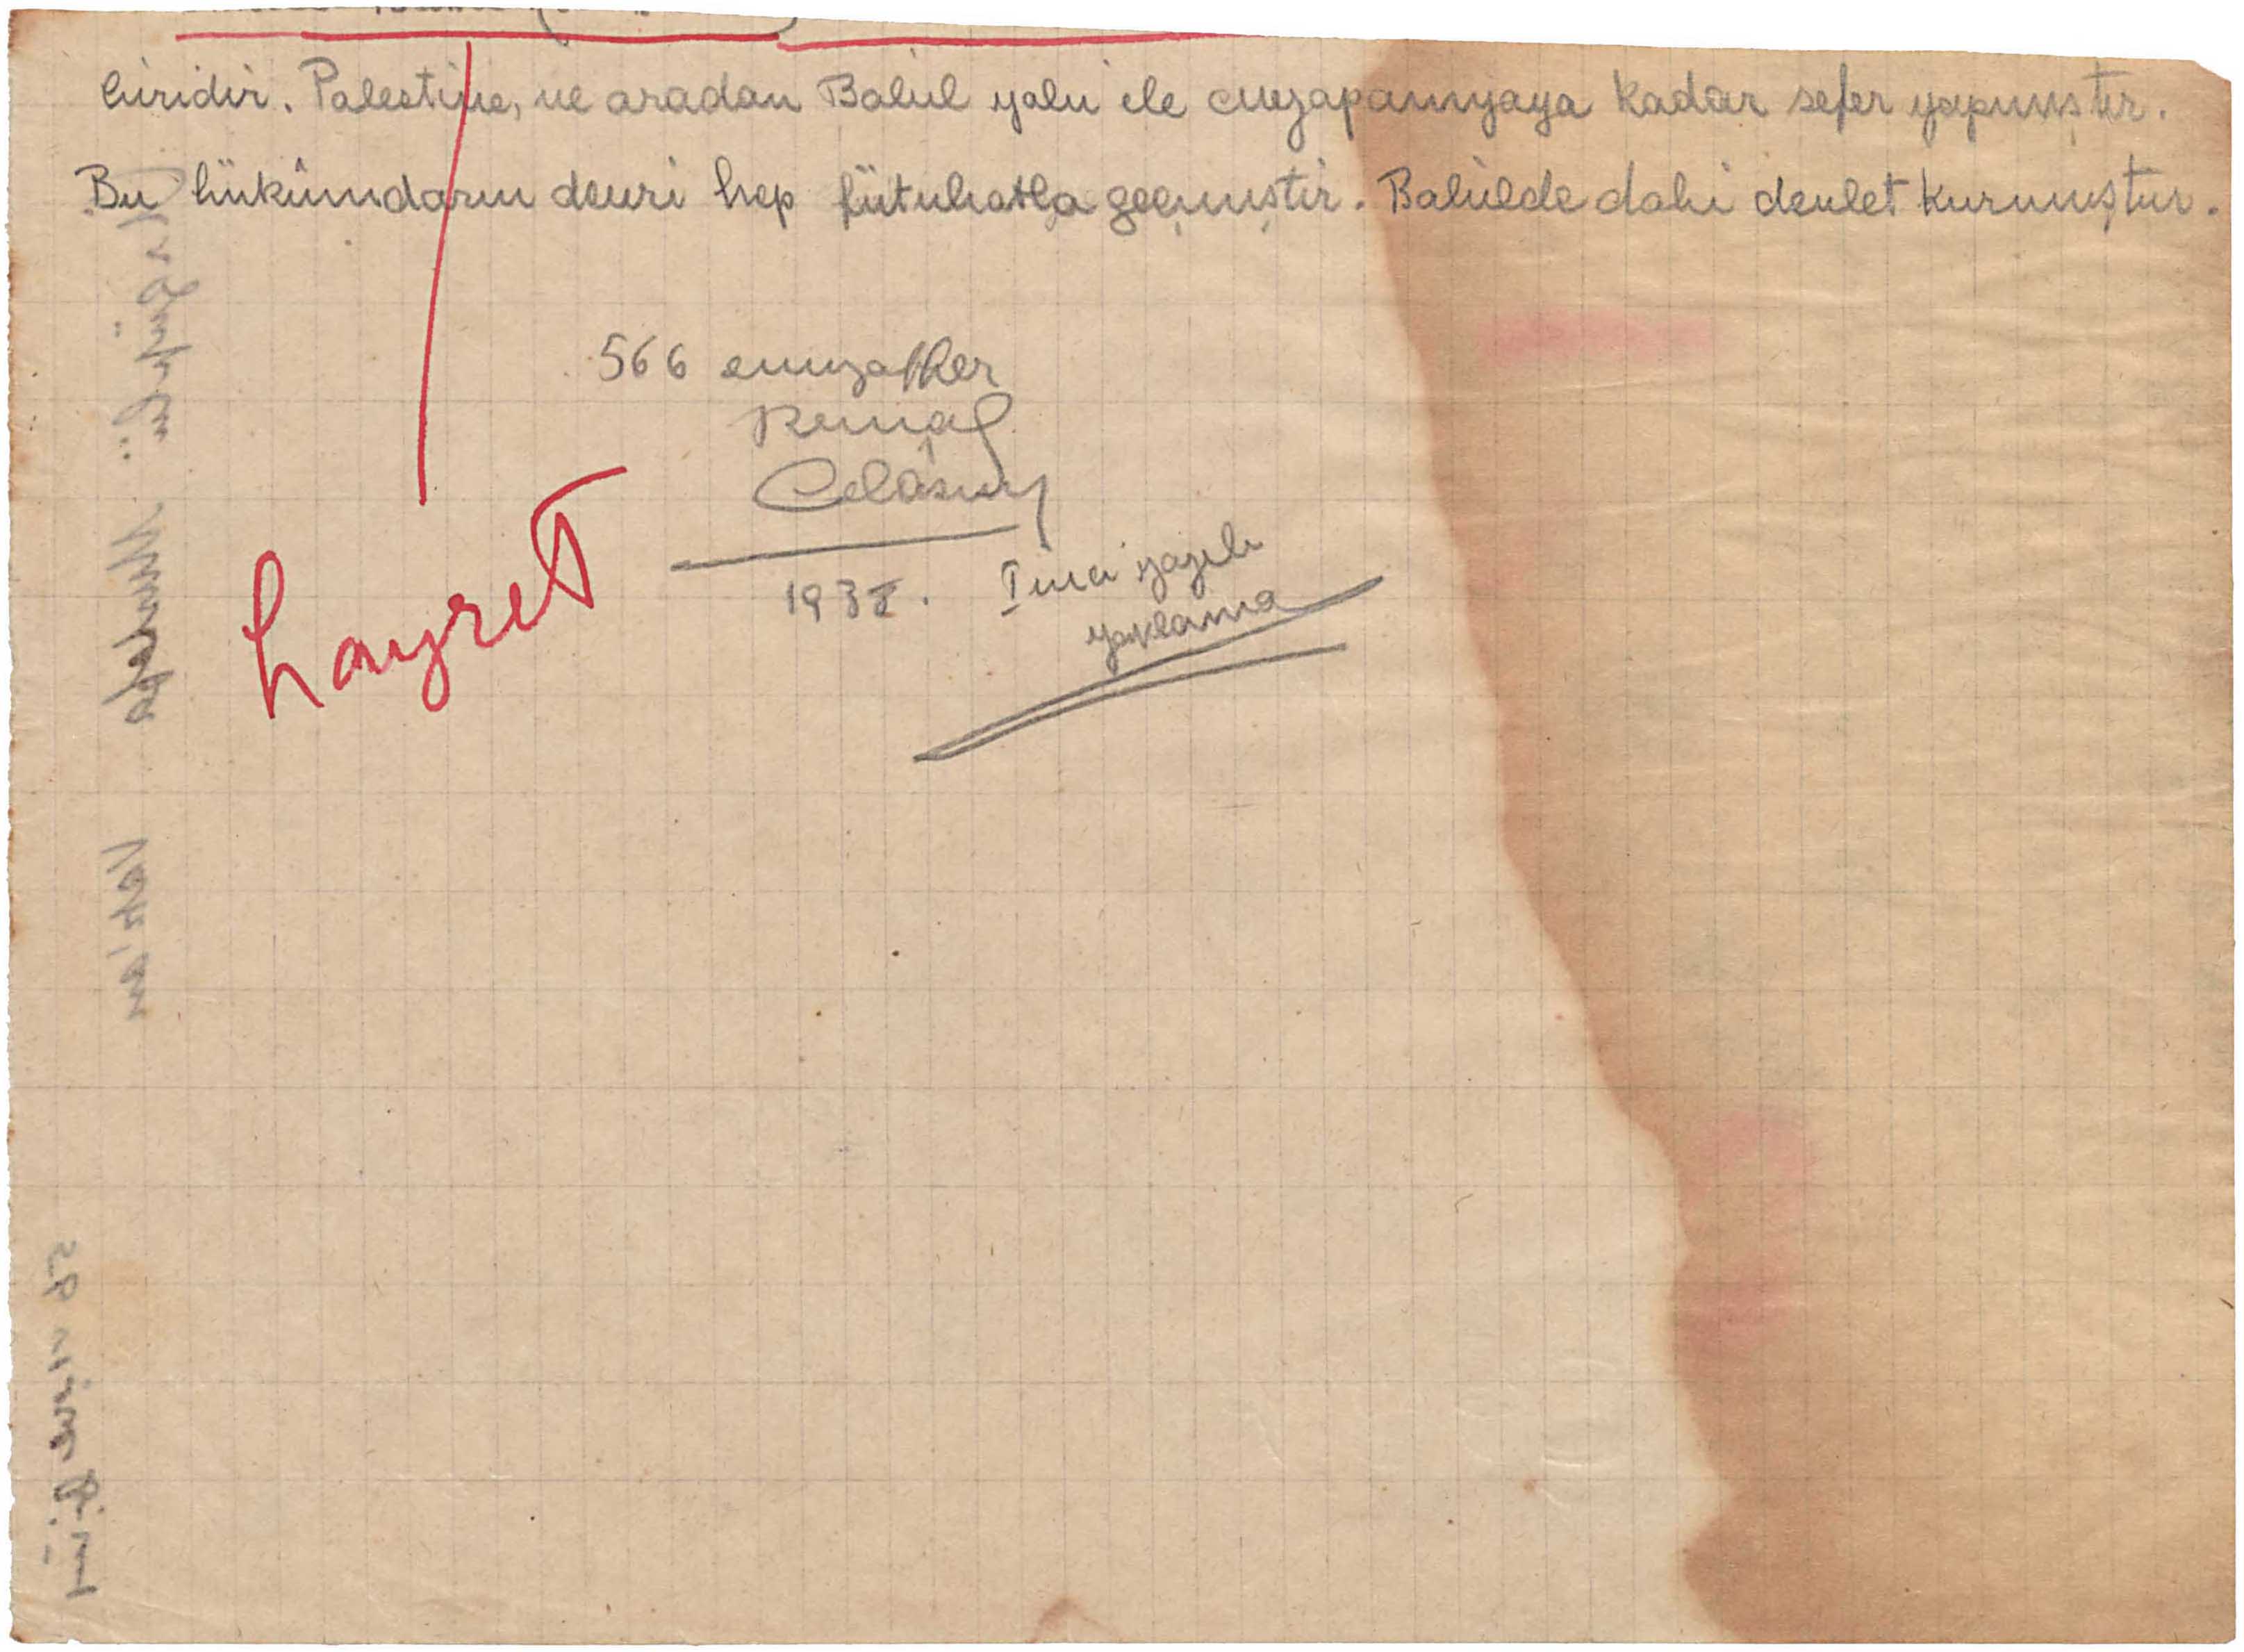 biridir. Palestine, ve oradan Babil yolu ile mezapamyaya kadar sefer yapmıştır.
Bu hükümdarın devri hep fütuhatla geçmiştir. Babilde dahi devlet kurmuştur.
566 muzaffer
Kemal
Celâsun
hayret
1938. Iinci yazılı
yoklama